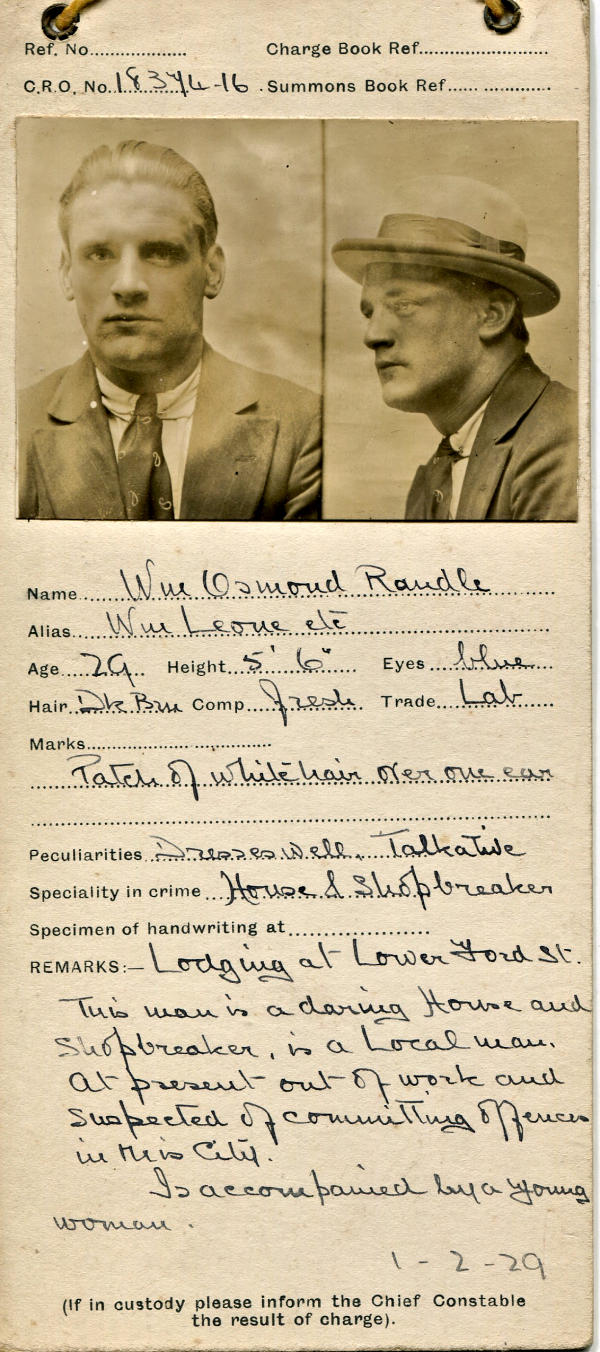 Ref. No.................. Charge Book Ref........................
C.R.O. No. 18374-16 . Summons Book Ref...... .............
Name Wm Osmond Randle
Alias Wm Leone etc
Age 29 Height 5' 6" Eyes blue
Hair Dk Brn Comp fresh Trade Lab
Marks..................................
Patch of white hair over one ear
Peculiarities Dresses well. Talkative
Speciality in crime House & Shopbreaker
Specimen of handwriting at.........................
REMARKS:— Lodging at Lower Ford St.
This man is a daring House and
Shopbreaker, is a Local man.
At present out of work and
suspected of committing offences
in this City.
Is accompanied by a young
woman.
1-2-29
(If in custody please inform the Chief Constable
the result of charge).